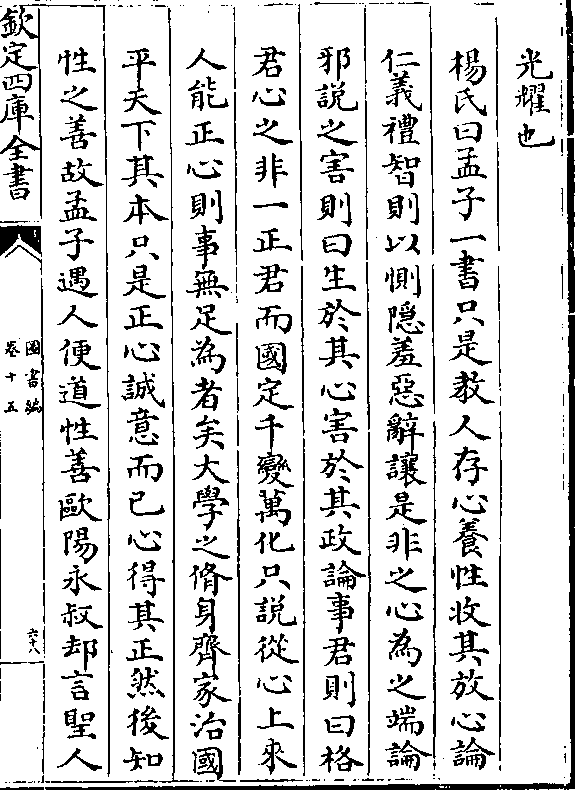 光耀也
楊氏曰孟子一書只是教人存心養性收其放心論
仁義禮智則以惻隱羞惡辭讓是非之心為之端論
邪說之害則曰生於其心害於其政論事君則曰格
君心之非一正君而國定千變萬化只說從心上來
人能正心則事無足為者矣大學之脩身齊家治國
平天下其本只是正心誠意而已心得其正然後知
性之善故孟子遇人便道性善歐陽永叔却言聖人
欽定四庫全書
圖書編
卷十五
六十八